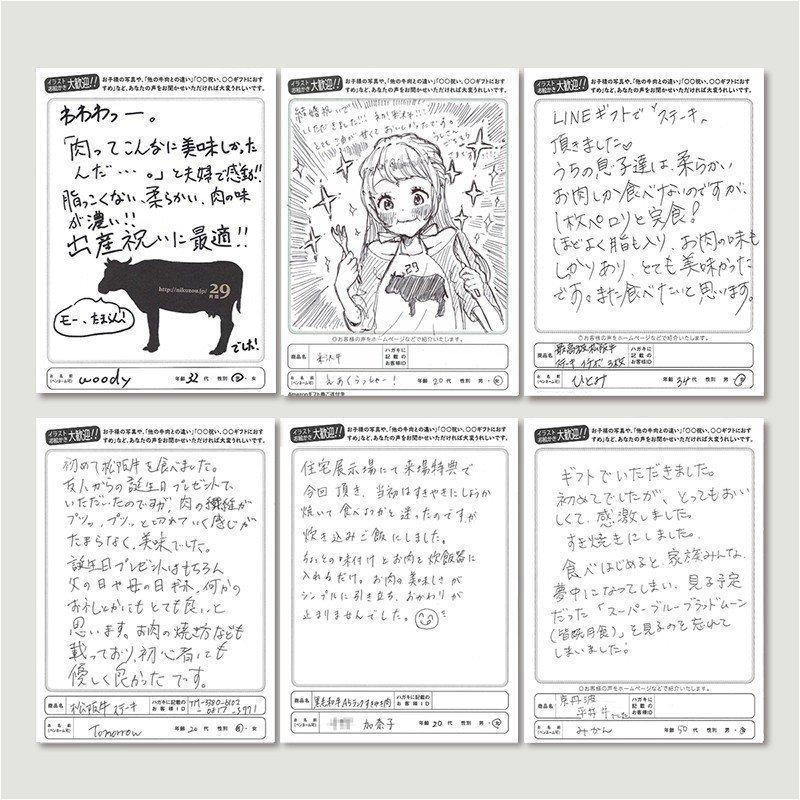 イラスト お絵かき 大歓迎!! お子様の写真や、「他の牛肉との違い」「〇〇祝い、〇〇ギフトにおす
すめ」など、あなたの声をお聞かせいただければ大変うれしいです。
わわわっー。
「肉ってこんなに美味しかった
んだ…。」と夫婦で感動!!
脂っこくない、柔らかい、肉の味
が濃い!!
出産祝いに最適!!
http://nikuzou.jp/ 29
モー、たまらん!
でした!
お名前 (ペンネーム可) woody 年齢 32 代 性別 男・女
イラスト お絵かき 大歓迎!! お子様の写真や、「他の牛肉との違い」「〇〇祝い、〇〇ギフトにおす
すめ」など、あなたの声をお聞かせいただければ大変うれしいです。
結婚祝いで
いただきました!!!
とても油が甘くておいしかったです。
29
◎お客様の声をホームページなどで紹介いたします。
商品名 米沢牛 ハガキに記載のお客様ID
お名前 (ペンネーム可) えあくらっしゃー! 年齢 20 代 性別 男・女
イラスト お絵かき 大歓迎!! お子様の写真や、「他の牛肉との違い」「〇〇祝い、〇〇ギフトにおす
すめ」など、あなたの声をお聞かせいただければ大変うれしいです。
LINEギフトで「ステーキ」
頂きました♡
うちの息子達は、柔らかい
お肉しか食べないのですが、
1枚ペロリと完食!
ほどよく脂も入り、お肉の味も
しっかりあり、とても美味かった
です。また食べたいと思います。
◎お客様の声をホームページなどで紹介いたします。
商品名 最高級松阪牛
ステーキ イチボ 3枚 ハガキに記載のお客様ID
お名前 (ペンネーム可) ひとみ 年齢 34 代 性別 男・女
イラスト お絵かき 大歓迎!! お子様の写真や、「他の牛肉との違い」「〇〇祝い、〇〇ギフトにおす
すめ」など、あなたの声をお聞かせいただければ大変うれしいです。
初めて松阪牛を食べました。
友人からの誕生日プレゼントで
いただいたのですが、肉の繊維が
プツッ、プツッと切れていく感じが
たまらなく、美味でした。
誕生日プレゼントはもちろん
父の日や母の日ギフト、何かの
お礼とかにもとても良いと
思います。お肉の焼き方なども
載っており、初心者にも
優しく良かったです。
商品名 松阪牛ステーキ ハガキに記載のお客様ID
お名前 (ペンネーム可) Tomorrow 年齢 20 代 性別 男・女
イラスト お絵かき 大歓迎!! お子様の写真や、「他の牛肉との違い」「〇〇祝い、〇〇ギフトにおす
すめ」など、あなたの声をお聞かせいただければ大変うれしいです。
住宅展示場にて来場特典で
今回頂き、当初はすきやきにしようか
焼いて食べようかと迷ったのですが
炊き込みご飯にしました。
ちょっとの味付けとお肉を炊飯器に
入れるだけ。お肉の美味しさが
シンプルに引き立ち、おかわりが
止まりませんでした。
商品名 黒毛和牛A5ランクすきやき肉 ハガキに記載のお客様ID
お名前 (ペンネーム可) 加奈子 年齢 20 代 性別 男・女
イラスト お絵かき 大歓迎!! お子様の写真や、「他の牛肉との違い」「〇〇祝い、〇〇ギフトにおす
すめ」など、あなたの声をお聞かせいただければ大変うれしいです。
ギフトでいただきました。
初めてでしたが、とってもおい
しくて、感激しました。
すき焼きにしました。
食べはじめると、家族みんな、
夢中になってしまい、見る予定
だった「スーパーブルーブラッドムーン
(皆既月食)」を見るのを忘れて
しまいました!
◎お客様の声をホームページなどで紹介いたします。
商品名 京丹波
平井牛 ハガキに記載のお客様ID
お名前 (ペンネーム可) みかん 年齢 50 代 性別 男・女